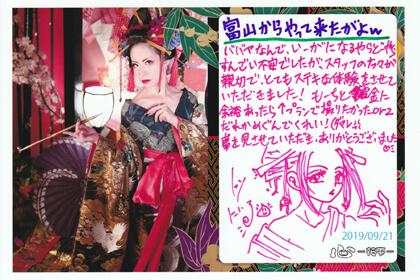 富山からやって来たがよw
ババァなんで、い〜がになるやらど〜
すんごい不安でしたが、スタッフの方々が
親切で、とてもステキな体験をさせて
いただきました! も〜ちっと 金に
余裕あったら↑プランで撮りたかったのに
だれかめぐんでくれい!
夢を見させていただき、ありがとうございました
2019/09/21
心 -花雫-